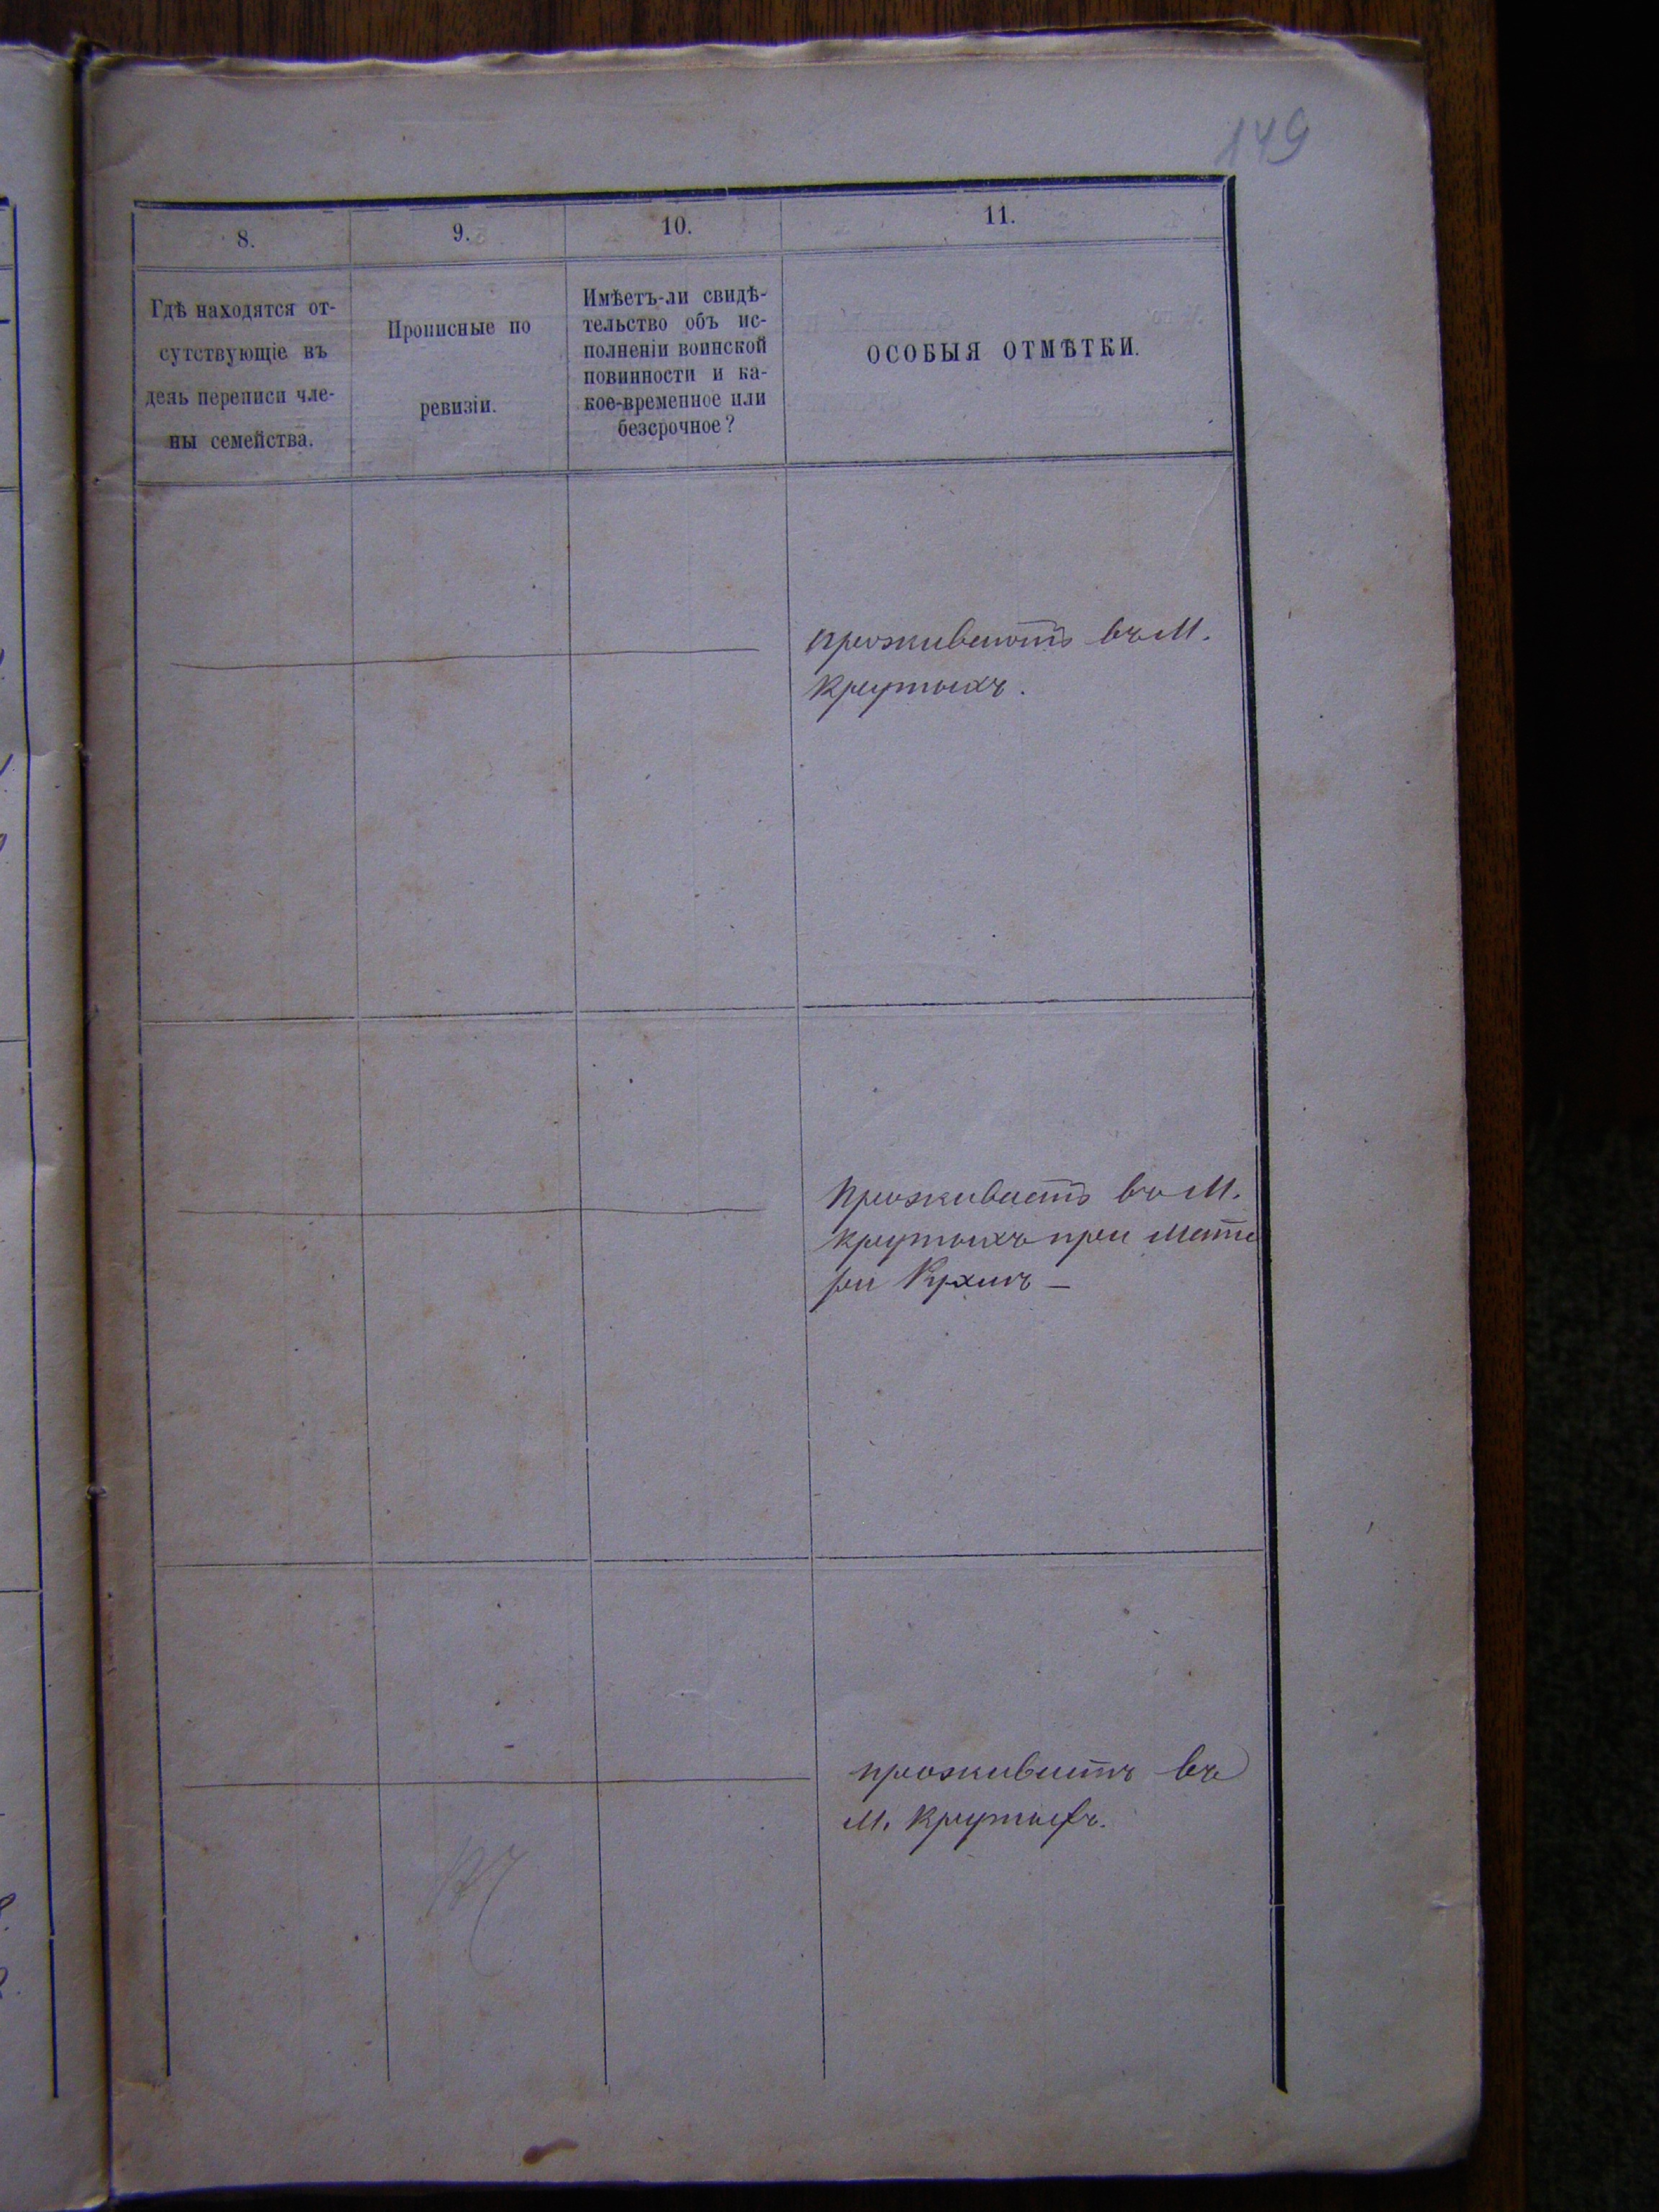 149
8.
9.
10.
11.
Гдѣ находятся от-
сутствующіе въ
день переписи чле-
ны семейства.
Прописные по
ревизіи.
Имѣетъ-ли свидѣ-
тельство объ ис-
полненіи воинской
повинности и ка-
кое-временное или
безсрочное?
ОСОБЫЯ ОТМѢТКИ.
проживаютъ въ М.
Крутыхъ.
проживаетъ въ М.
Крутыхъ при мате
ри
проживаетъ въ
М. Крутыхъ.